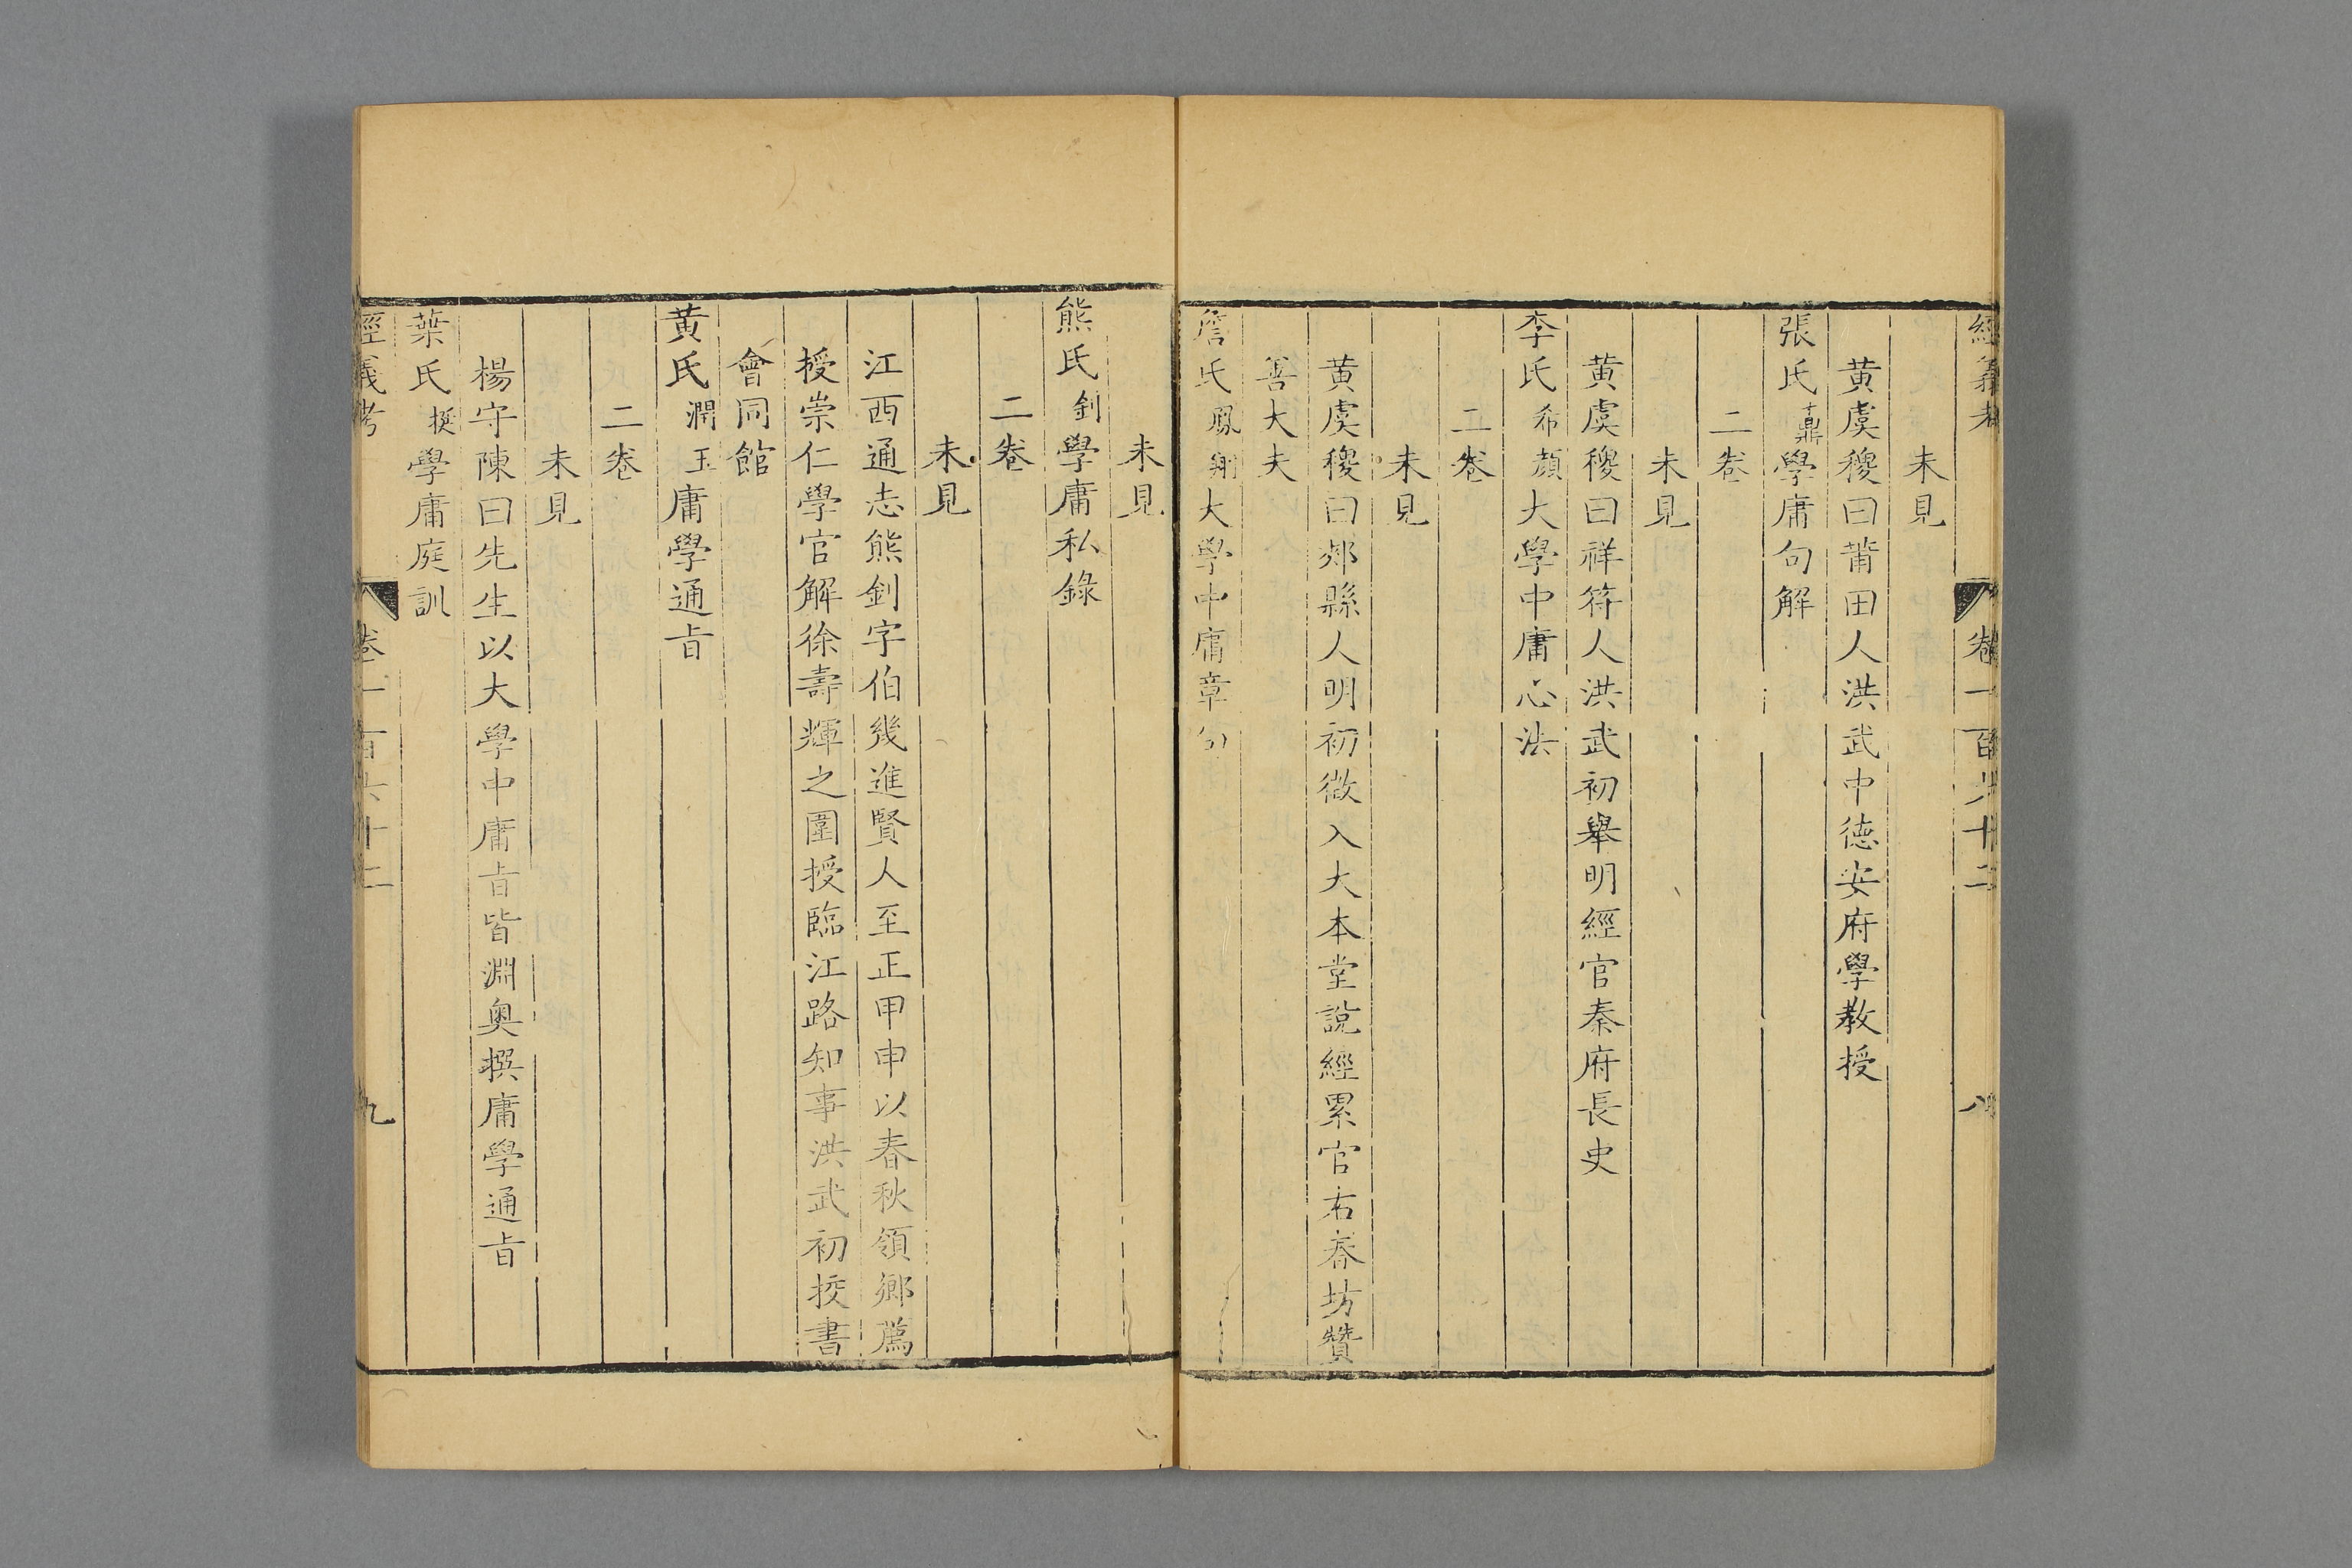 經義考 卷一百六十二 八
未見
黃虞稷曰莆田人洪武中德安府學教授
張氏鼒學庸句解
二卷
未見
黃虞稷曰祥符人洪武初舉明經官秦府長史
李氏希顔大學中庸心法
二卷
未見
黃虞稷曰郟縣人明初徵入大本堂說經累官右春坊贊
善大夫
詹氏鳳翔大學中庸章句
未見
熊氏釗學庸私錄
二卷
未見
江西通志熊釗字伯幾進賢人至正甲申以春秋領鄉薦
授崇仁學官解徐壽輝之圍授臨江路知事洪武初挍書
會同館
黃氏潤玉庸學通旨
二卷
未見
楊守陳曰先生以大學中庸旨皆淵奧撰庸學通旨
葉氏挺學庸庭訓
經義考 卷一百六十二 九